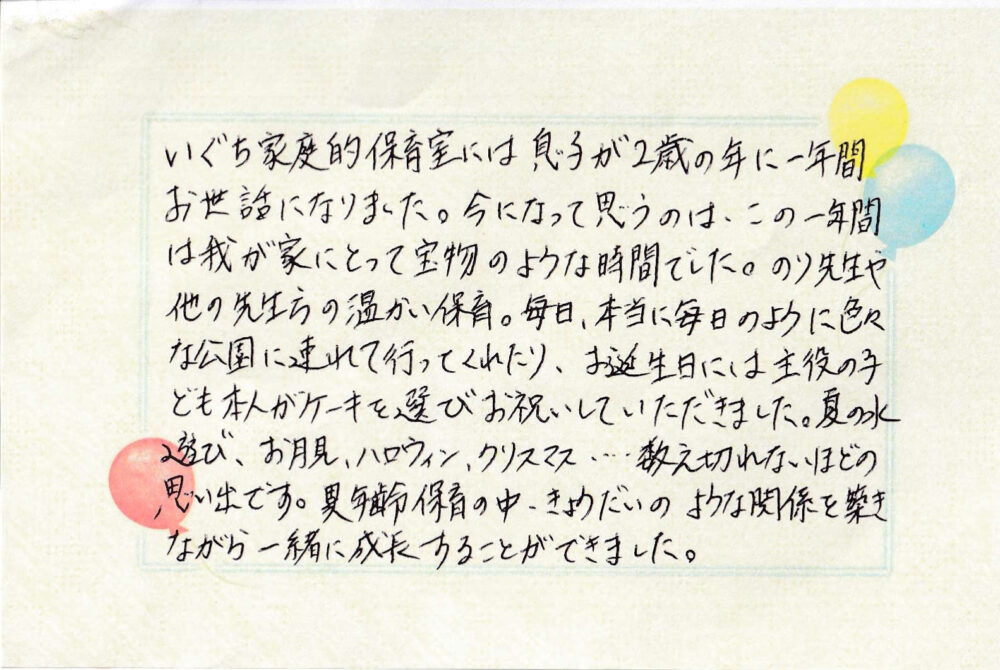 いぐち家庭的保育室には息子が2歳の年に一年間
お世話になりました。今になって思うのは、この一年間
は我が家にとって宝物のような時間でした。のり先生や
他の先生方の温かい保育。毎日、本当に毎日のように色々
な公園に連れて行ってくれたり、お誕生日には主役の子
ども本人がケーキを選びお祝いしていただきました。夏の水
遊び、お月見、ハロウィン、クリスマス…数え切れないほどの
思い出です。異年齢保育の中、きょうだいのような関係を築き
ながら一緒に成長することができました。